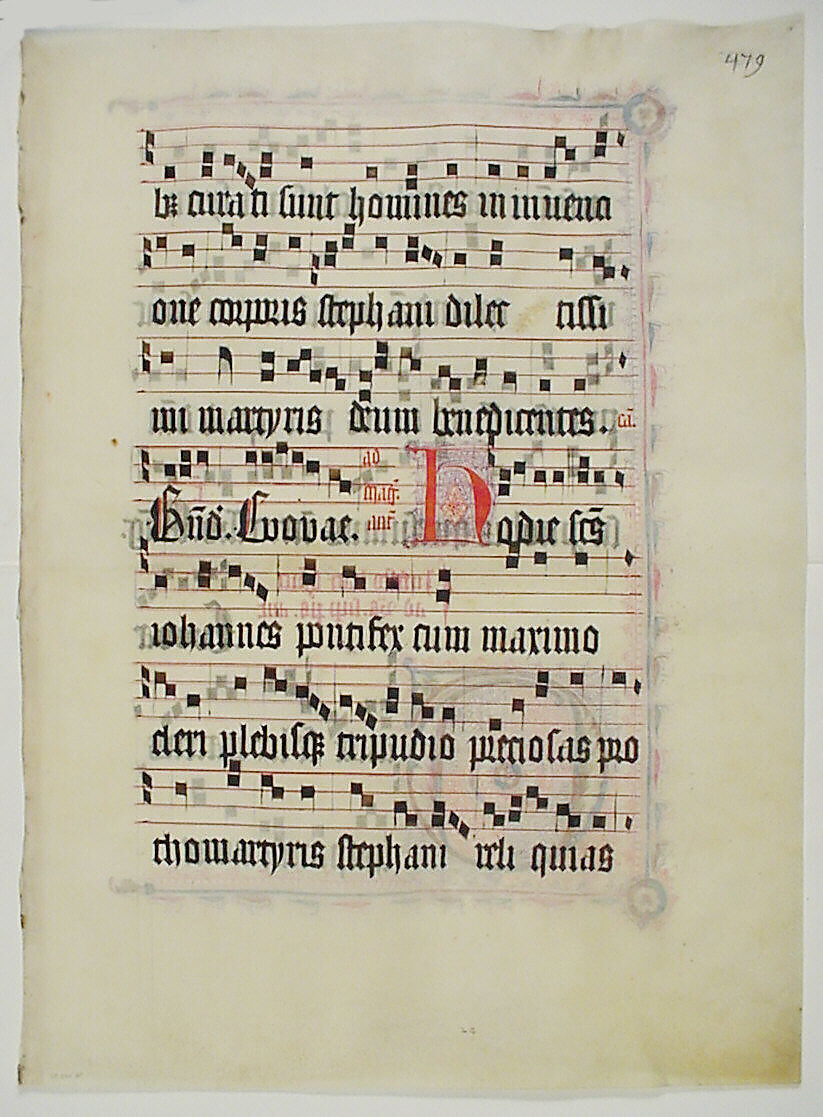 479
bȝ curati sunt homines in inuenci
one corporis stephani dilec tissi
mi martyris deum benedicentes. ca͞.
Bn̄d. Euouae. ad mag͞. ant͞. Hodie sc͞s
iohannes pontifex cum maximo
cleri plebisqȝ tripudio preciosas pro
thomartyris stephani reli quias